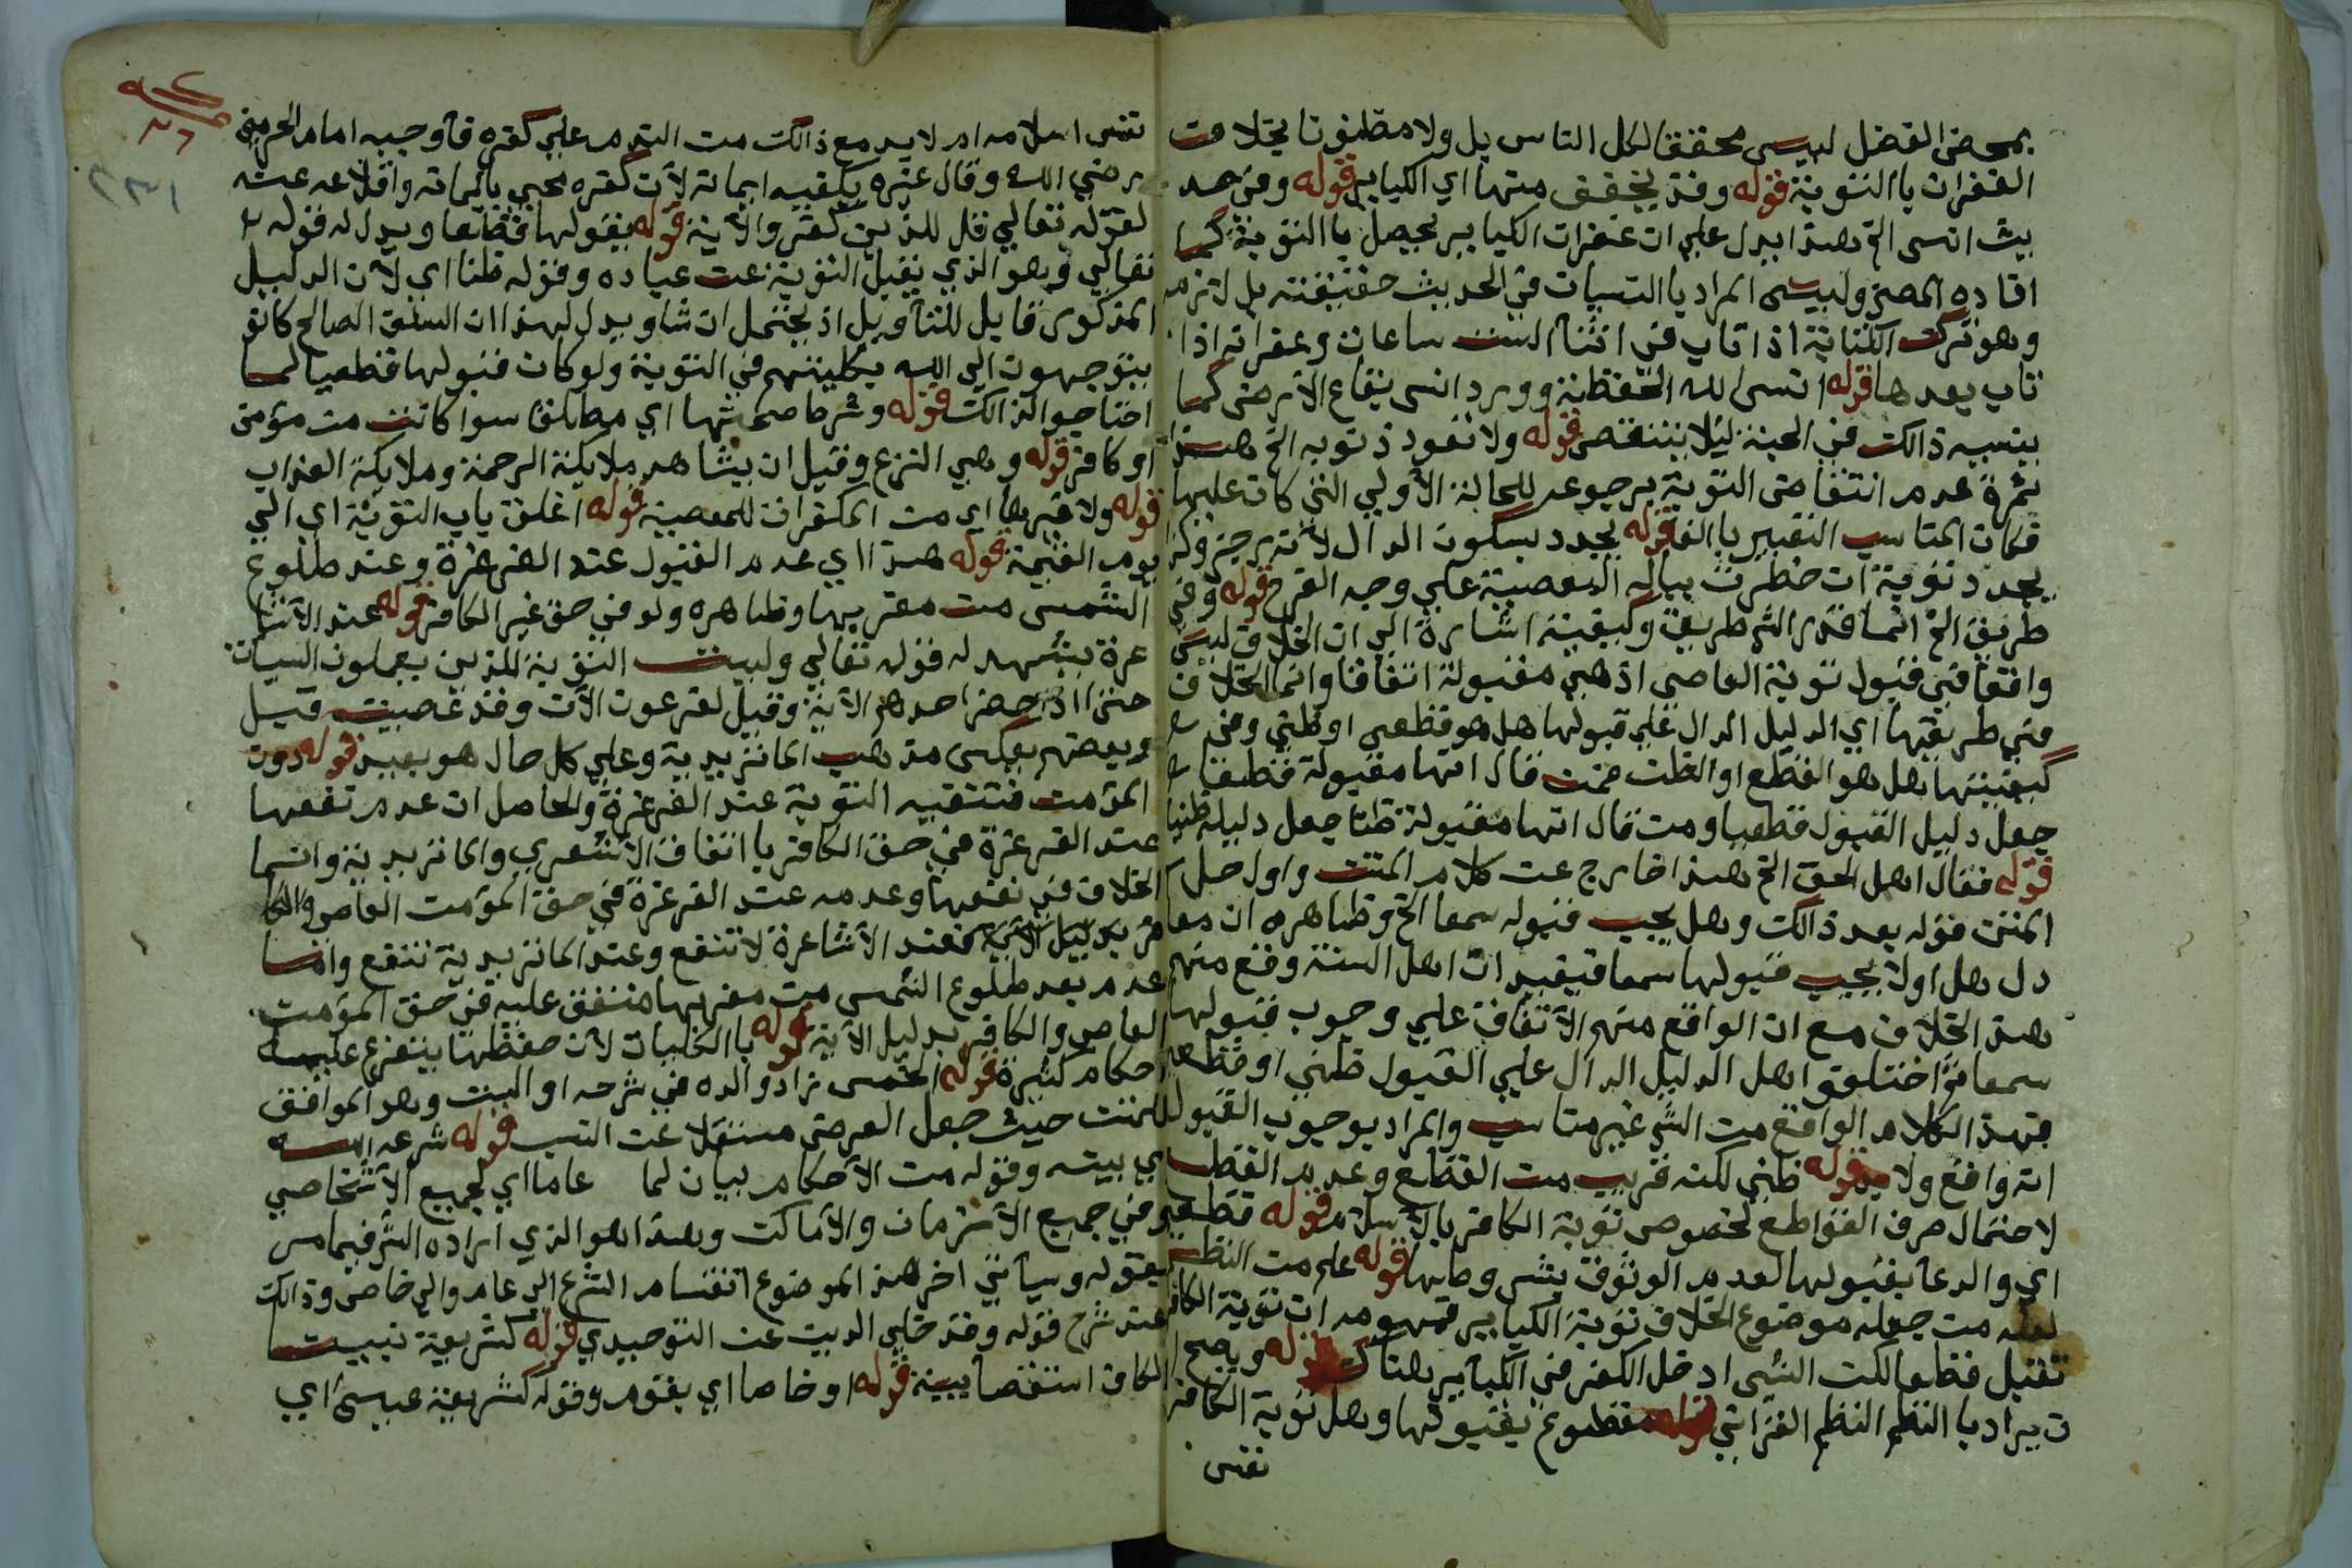 بمحض الفضل ليس محققا لكل الناس بل ولا مظنونا بخلاف
الغفران باالتوبة قوله وقد يتحقق منها اي الكباير قوله وفي حد
يث انسى الخ هذا يدل علي ان غفران الكباير يحصل باالتوبة كما
افاده المصنف وليس المراد باالنسيان في الحديث حقيقته بل لازمه
وهو ترك الكتابة اذا تاب في اثنآ الست ساعات وغفرانه اذا
تاب بعدها قوله انسى الله الحفظة وورد انسى بقاع الارض كما
ينسيه ذالك في الجنة ليلا يتنغص قوله ولا تعود ذنوبه الخ هذا
ثمرة عدم انتقاض التوبة برجوعه للحالة الأولي التي كان عليها
فكان المناسب التعبير باالفا قوله يجدد بسكون الدال لأنه رجز وكذ
يجدد توبة ان خطرت بباله المعصية علي وجه الفرح قوله وفي
طريق الخ انما قدر الش طريق وكيفية اشارة الي ان الخلاف ليس
واقعا في قبول توبة العاصى اذ هي مقبولة اتفاقا وانما الخلاف
في طريقها اي الدليل الدال علي قبولها هل هو قطعي او ظني وفي
كيفيتها هل هو القطع او الظن فمن قال انها مقبولة قطعا
جعل دليل القبول قطعيا ومن قال انها مقبولة ظنا جعل دليله ظنيا
قوله فقال اهل الحق الخ هذا خارج عن كلام المتن واول حل
المتن قوله بعد ذالك وهل يجب قبوله سمعا الخ وظاهره ان معا
دل هل اولا يجب قبولها سمعا فيفيد ان اهل السنة وقع منهم
هذ الخلاف مع ان الواقع منهم الأتفاق علي وجوب قبولها
سمعا واختلفوا هل الدليل الدال علي القبول ظني او قطعي
فهذ الكلام الواقع من الش غير مناسب والمراد بوجوب القبول
انه واقع ولا بد قوله ظني لكنه قريب من القطع وعدم القطع
لاحتمال صرف القواطع لخصوص توبة الكافر بالأسلام قوله قطعي
اي والدعآ بقبولها لعدم الوثوق بشروطها قوله علم من النظم
لعله من جعله موضوع الخلاف توبة الكباير فمفهومه ان توبة الكافر
تقبل قطعا لكن الشى ادخل الكفر في الكبآير هناك قوله ويصح ا
ن يراد باالنظم النظم القرآني قوله مقطوع بقبولها وهل توبة الكافر
نفس
نفس اسلامه ام لابد مع ذالك من الندم علي كفره فآوجبه امام الحرمين
رضي الله وقال غيره يكفيه ايمانه لأن كفره محي بايمانه واقلاعه عنه
لقوله تعالي قل للذين كفرو الأية قوله بقبولها قطعا ويدل له قوله
تعالي وهو الذي يقبل التوبة عن عباده وقوله ظنا اي لأن الدليل
المذكور قابل للتآويل اذ يحتمل ان شا ويدل لهذا ان السلف الصالح كانو
يتوجهون الي الله بكليتهم في التوبة ولو كان قبولها قطعيا لما
احتاجوا لذالك قوله وشرط صحتها اي مطلقا سوا كانت من مؤمن
او كافر قوله وهي النزع وقيل ان يشاهد ملايكة الرحمة وملايكة العذاب
قوله ولا غيرها اي من المكفرات للمعصية قوله اغلق باب التوبة اي الي
يوم القيمة قوله هذا اي عدم القبول عند الغرغرة وعند طلوع
الشمس من مغربها وظاهره ولو في حق غير الكافر قوله عند الأشا
عرة يشهد له قوله تعالي وليست التوبة للذين يعملون السيات
حتى اذا حضر احدهم الأية وقيل لفرعون الآن وقد عصيت قبل
وبعضهم بعكس مذهب الماتريدية وعلي كل حال هو بعيد قوله دون
المؤمن فتنفعه التوبة عند الغرغرة والحاصل ان عدم نفعها
عند الغرغرة في حق الكافر باتفاق الأشعري والماتريدية وانما
الخلاف في نفعها وعدمه عند الغرغرة في حق المؤمن العاص والكا
فر بدليل الأية فعند الأشاعرة لا تنفع وعند الماتريدية تنفع وانما
عدم بعد طلوع الشمس من مغربها متفق عليه في حق المؤمن
العاص والكافر بدليل الأية قوله باالكليات لأن حفظها يتفرع عليه
احكام كثيرة قوله الخمس زاد والده في شرحه او الست وهو الموافق
للمتن حيث جعل العرض مستقلا عن النسب قوله شرعه الله
اي بينه وقوله من الأحكام بيان لما عاما اي لجميع الأشخاص
وفي جميع الأزمان والأماكن وهذا هو الذي اراده الش فيما مر
بقوله وسيآتي اخر هذ الموضوع انقسام الشرع الي عام والي خاص وذالك
عند شرح قوله وقد خلي الدين عن التوحيدي قوله كشريعة نبينا
الكاف استقصآيية قوله او خاصا اي بقوم وقوله كشريعة عيسى اي